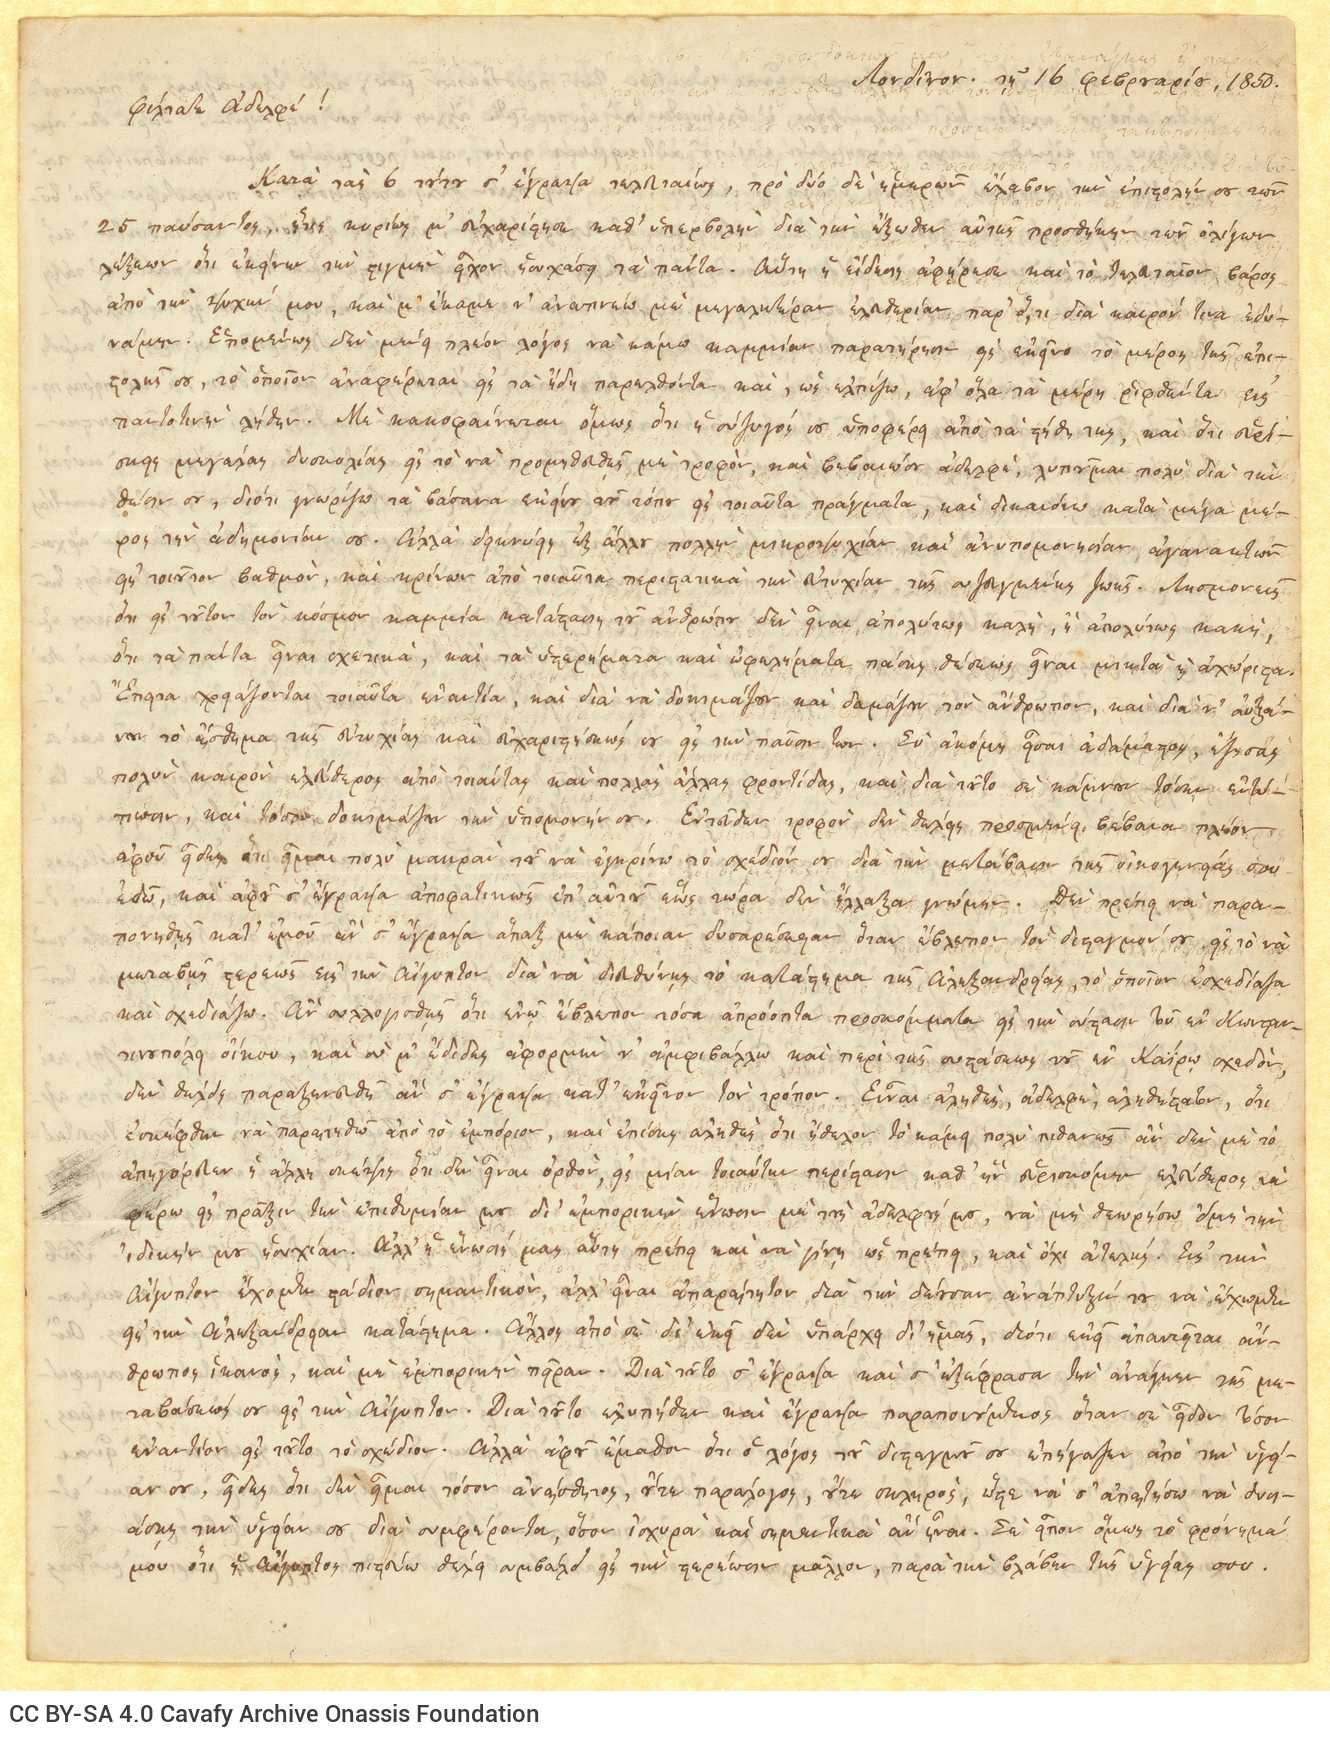 Λονδῖνον. τῇ 16 Φεβρουαρίου, 1850.
Φίλτατε Ἀδελφέ!
Κατὰ τὰς 6 τούτου σ' ἔγραψα τελευταίως, πρὸ δύο δὲ ἡμερῶν ἔλαβον τὴν ἐπιστολήν σου τῶν
25 παύσαντος, ἥτις κυρίως μ' εὐχαρίστησε καθ' ὑπερβολὴν διὰ τὴν ἔξωθεν αὐτῆς προσθήκην τῶν ὀλίγων
λέξεων ὅτι ἐκείνην τὴν στιγμὴν εἶχον ἡσυχάσῃ τὰ πάντα. Αὕτη ἡ εἴδησις ἀφῄρεσε καὶ τὸ τελευταῖον βάρος
ἀπὸ τὴν ψυχήν μου, καὶ μ' ἔκαμε ν' ἀναπνεύω μὲ μεγαλητέραν ἐλευθερίαν παρ' ὅ,τι διὰ καιρόν τινα ἐδυ-
νάμην. Ἑπομένως δὲν μένει πλέον λόγος νὰ κάμω καμμίαν παρατήρησιν εἰς ἐκεῖνο τὸ μέρος τῆς ἐπι-
στολῆς σου, τὸ ὁποῖον ἀναφέρεται εἰς τὰ ἤδη παρελθόντα καὶ, ὡς ἐλπίζω, ἀφ' ὅλα τὰ μέρη ῥιφθέντα εἰς
παντοτινὴν λήθην. Μὲ κακοφαίνεται ὅμως ὅτι ἡ σύζυγός σου ὑποφέρει ἀπὸ τὰ στήθη της, καὶ ὅτι εὑρί-
σκεις μεγάλας δυσκολίας εἰς τὸ νὰ προμηθευθῇς μὲ τροφόν, καὶ βεβαιώσου ἀδελφέ, λυποῦμαι πολὺ διὰ τὴν
θέσιν σου, διότι γνωρίζω τὰ βάσανα ἐκείνου τοῦ τόπου εἰς τοιαῦτα πράγματα, καὶ δικαιόνω κατὰ μέγα μέ-
ρος τὴν ἀδημονίαν σου. Ἀλλὰ δεικνύεις ἐξ ἄλλου πολλὴν μικροψυχίαν καὶ ἀνυπομονησίαν ἀγανακτῶν
εἰς τοιοῦτον βαθμὸν, καὶ κρίνων ἀπὸ τοιαῦτα περιστατικὰ τὴν εὐτυχίαν τῆς συζευγμένης ζωῆς. Λησμονεῖς
ὅτι εἰς τοῦτον τὸν κόσμον καμμία κατάστασις τοῦ ἀνθρώπου δὲν εἶναι ἀπολύτως καλὴ, ἢ ἀπολύτως κακὴ,
ὅτι τὰ πάντα εἶναι σχετικὰ, καὶ τὰ ὑστερήματα καὶ ὠφελήματα πάσης θέσεως εἶναι μικτὰ ἢ ἀχώριστα.
Ἔπειτα χρειάζονται τοιαῦτα ἐναντία, καὶ διὰ νὰ δοκιμάζουν καὶ δαμάζουν τὸν ἄνθρωπον, καὶ διὰ ν' αὐξά-
νουν τὸ αἴσθημα τῆς εὐτυχίας καὶ εὐχαριστήσεώς σου εἰς τὴν παῦσίν των. Σὺ ἀκόμη εἶσαι ἀδάμαστος, ἔζησας
πολὺν καιρὸν ἐλεύθερος ἀπὸ τοιαύτας καὶ πολλὰς ἄλλας φροντίδας, καὶ διὰ τοῦτο σὲ κάμνουν τόσην ἐντύ-
πωσιν, καὶ τόσον δοκιμάζουν τὴν ὑπομονήν σου. Ἐντεῦθεν τροφὸν δὲν θέλεις προσμένει βέβαια πλέον
ἀφοῦ εἶδες ὅτι εἶμαι πολὺ μακρὰν τοῦ νὰ ἐγκρίνω τὸ σχέδιόν σου διὰ τὴν μετάβασιν τῆς οἰκογενείας σου
ἐδῶ, καὶ ἀφοῦ σ' ἔγραψα ἀποφατικῶς ἐπ' αὐτοῦ ἕως τώρα δὲν ἤλλαξα γνώμην. Δὲν πρέπει νὰ παρα-
πονηθῇς κατ' ἐμοῦ ἂν σ' ἔγραψα ἅπαξ μὲ κάποιαν δυσαρέσκειαν ὅταν ἔβλεπον τὸν δισταγμόν σου εἰς τὸ νὰ
μεταβῇς στερεῶς εἰς τὴν Αἴγυπτον διὰ νὰ διευθύνῃς τὸ κατάστημα τῆς Ἀλεξανδρείας, τὸ ὁποῖον ἐσχεδίαζα
καὶ σχεδιάζω. Ἂν συλλογισθῇς ὅτι ἐνῷ ἔβλεπον τόσα ἀπρόοπτα προσκόμματα εἰς τὴν σύστασιν τοῦ ἐν Κωνσταν-
τινουπόλει οἴκου, καὶ σὺ μ' ἔδιδες ἀφορμὴν ν' ἀμφιβάλλω καὶ περὶ τῆς συστάσεως τοῦ ἐν Καΐρῳ σχεδὸν,
δὲν θέλεις παραξενευθῇ ἂν σ' ἔγραψα κατ' ἐκεῖνον τὸν τρόπον. Εἶναι ἀληθὲς, ἀδελφέ, ἀληθέστατον, ὅτι
ἐσκέφθην νὰ παραιτηθῶ ἀπὸ τὸ ἐμπόριον, καὶ ἐπίσης ἀληθὲς ὅτι ἤθελον τὸ κάμει πολὺ πιθανῶς ἂν δὲν μὲ τὸ
ἀπηγόρευεν ἡ ἄλλη σκέψις ὅτι δὲν εἶναι ὀρθὸν, εἰς μίαν τοιαύτην περίστασιν καθ' ἣν εὑρισκόμην ἐλεύθερος νὰ
φέρω εἰς πρᾶξιν τὴν ἐπιθυμίαν μου δι' ἐμπορικὴν ἕνωσιν μὲ τοὺς ἀδελφούς μου, νὰ μὴ θεωρήσω ὅμως τὴν
ἰδικήν μου ἡσυχίαν. Ἀλλ' ἡ ἕνωσίς μας αὕτη πρέπει καὶ νὰ γίνῃ ὡς πρέπει, καὶ ὄχι ἀτελής. Εἰς τὴν
Αἴγυπτον ἔχομεν στάδιον σημαντικὸν, ἀλλ' εἶναι ἀπαραίτητον διὰ τὴν δέουσαν ἀνάπτυξίν του νὰ ἔχωμεν
εἰς τὴν Ἀλεξάνδρειαν κατάστημα. Ἄλλος ἀπὸ σὲ δι' ἐκεῖ δὲν ὑπάρχει δι' ἡμᾶς, διότι ἐκεῖ ἀπαιτεῖται ἄν-
θρωπος ἱκανὸς, καὶ μὲ ἐμπορικὴν πεῖραν. Διὰ τοῦτο σ' ἔγραψα καὶ σ' ἐξέφρασα τὴν ἀνάγκην τῆς με-
ταβάσεώς σου εἰς τὴν Αἴγυπτον. Διὰ τοῦτο ἐλυπήθην καὶ ἔγραψα παραπονούμενος ὅταν σὲ εἶδον τόσον
ἐναντίον εἰς τοῦτο τὸ σχέδιον. Ἀλλὰ ἀφοῦ ἔμαθον ὅτι ὁ λόγος τοῦ δισταγμοῦ σου ἐπήγαζεν ἀπὸ τὴν ὑγεί-
αν σου, εἶδες ὅτι δὲν εἶμαι τόσον ἀναίσθητος, οὔτε παράλογος, οὔτε σκληρὸς, ὥστε νὰ σ' ἀπαιτήσω νὰ θυσι-
άσῃς τὴν ὑγείαν σου διὰ συμφέροντα, ὅσον ἰσχυρὰ καὶ σημαντικὰ ἂν ἦναι. Σὲ εἶπον ὅμως τὸ φρόνημά
μου ὅτι ἡ Αἴγυπτος πιστεύω θέλει συμβάλει εἰς τὴν στερέωσιν μᾶλλον, παρὰ τὴν βλάβην τῆς ὑγείας σου.
CC BY-SA 4.0 Cavafy Archive Onassis Foundation